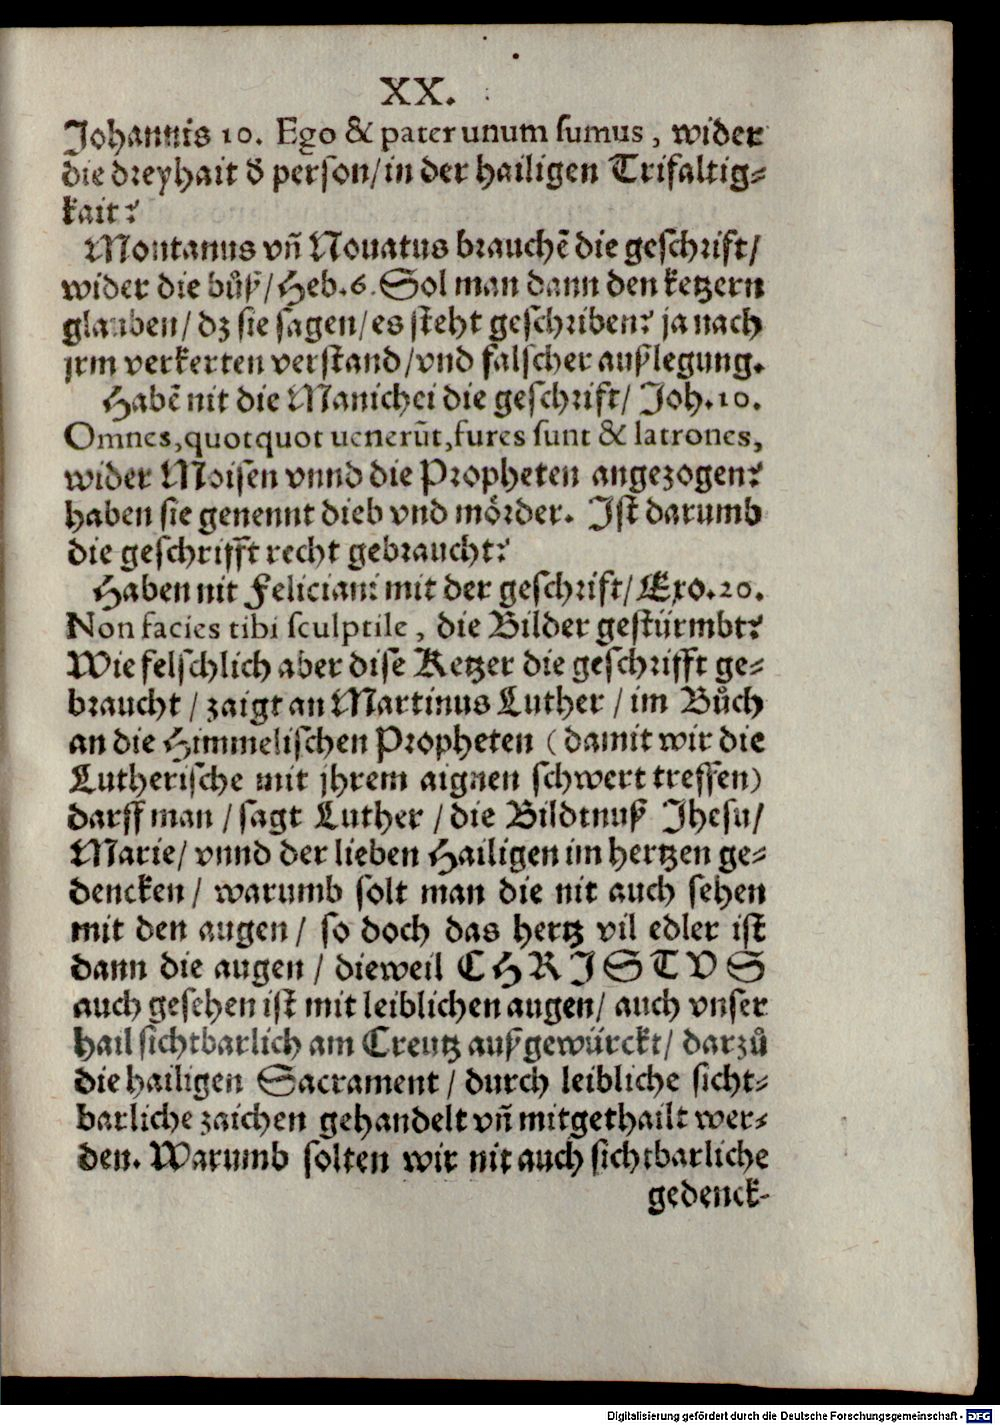 XX.
Johannis 10. Ego & pater unum sumus, wider
die dreyhait d̕ person/in der hailigen Trifaltig⸗
kait?
Montanus vñ Nouatus brauchẽ die geschrift/
wider die bůß/Heb.6. Sol man dann den ketzern
glauben/dz sie sagen/es steht geschriben? ja nach
jrm verkerten verstand/vnd falscher außlegung.
Habẽ nit die Manichei die geschrift/ Joh.10.
Omnes,quotquot uenerũt,fures sunt & latrones,
wider Moisen vnnd die Propheten angezogen?
haben sie genennt dieb vnd mörder. Ist darumb
die geschrifft recht gebraucht?
Haben nit Feliciani mit der geschrift/Exo.20.
Non facies tibi sculptile, die Bilder gestürmbt?
Wie felschlich aber dise Ketzer die geschrifft ge⸗
braucht / zaigt an Martinus Luther / im Bůch
an die Himmelischen Propheten (damit wir die
Lutherische mit jhrem aignen schwert treffen)
darff man / sagt Luther / die Bildtnuß Jhesu/
Marie/ vnnd der lieben Hailigen im hertzen ge⸗
dencken/ warumb solt man die nit auch sehen
mit den augen/ so doch das hertz vil edler ist
dann die augen / dieweil CHRISTVS
auch gesehen ist mit leiblichen augen/ auch vnser
hail sichtbarlich am Creutz außgewürckt/ darzů
die hailigen Sacrament / durch leibliche sicht⸗
barliche zaichen gehandelt vñ mitgethailt wer⸗
den. Warumb solten wir nit auch sichtbarliche
gedenck⸗
Digitalisierung gefördert durch die Deutsche Forschungsgemeinschaft - DFG